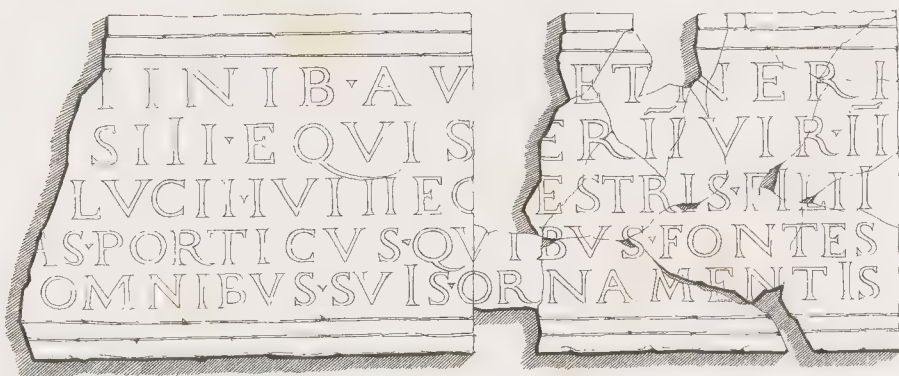 INIB·AV ET NERI
S III·EQVIS ER II VIR·II
LVCII·IVLII EQ ESTRIS·FILII
AS·PORTICVS·QVIBVS·FONTES
OMNIBVS·SVIS·ORNAMENTIS